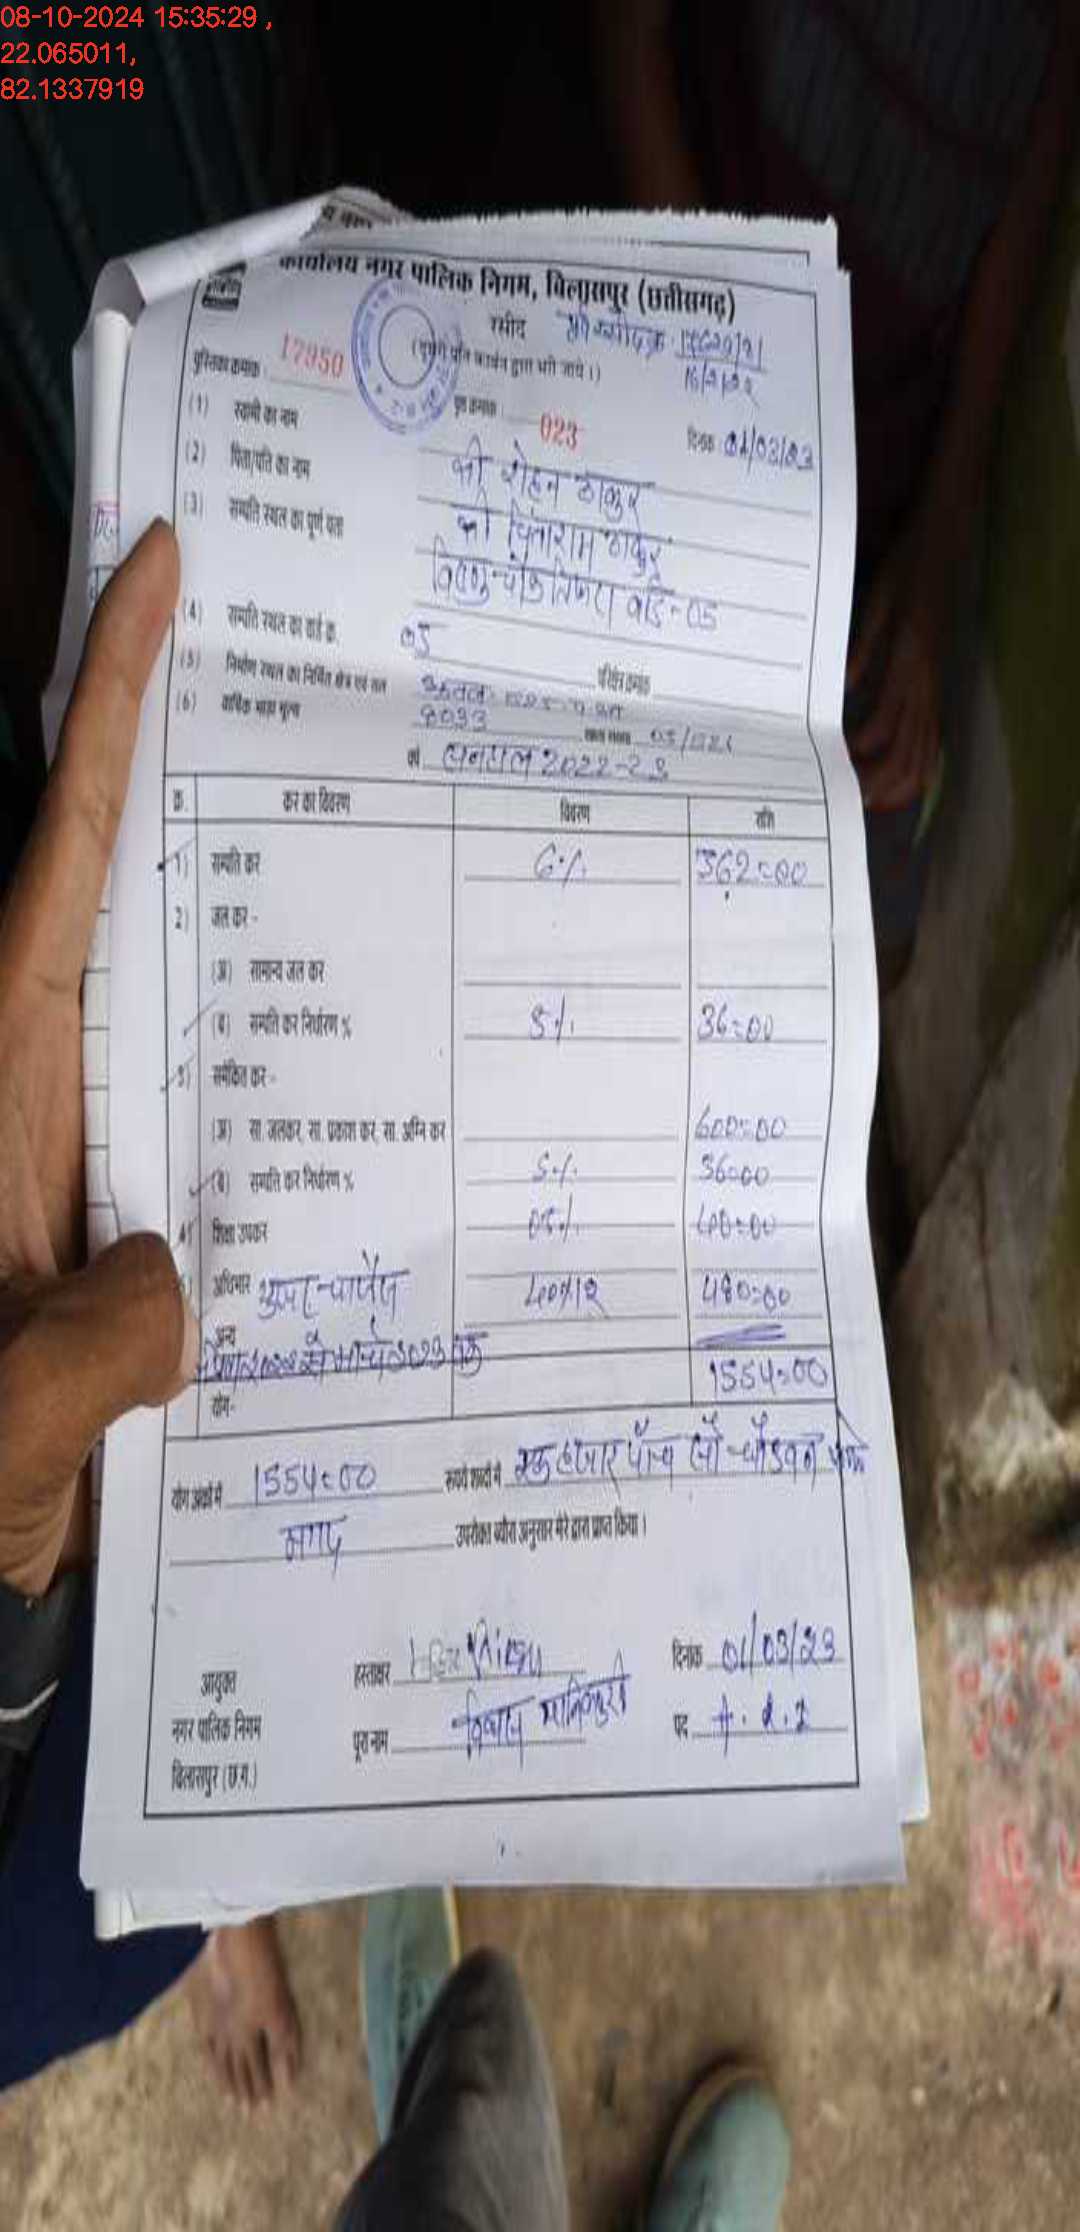 08-10-2024 15:35:29 ,
22.065011,
82.1337919
कार्यालय नगर पालिक निगम, बिलासपुर (छत्तीसगढ़)
रसीद
(दुसरी प्रति कार्बन द्वारा भरी जाये।)
पुस्तिका क्रमांक 17950
16/2/22
पृष्ठ क्रमांक 023
दिनांक 01/03/23
(1) स्वामी का नाम श्री रोहन ठाकुर
(2) पिता/पति का नाम श्री ठाकुर
(3) सम्पत्ति स्थल का पूर्ण पता विष्णु चौक तिफरा वार्ड-05
(4) सम्पत्ति स्थल का वार्ड क्र. 05 परिक्षेत्र क्रमांक
(5) निर्माण स्थल का निर्मित क्षेत्र एवं तल
(6) वार्षिक भाड़ा मूल्य 8033
वर्ष हालसाल 2022-23
क्र. कर का विवरण विवरण राशि
1) सम्पत्ति कर 6% 362=00
2) जल कर -
(अ) सामान्य जल कर
(ब) सम्पत्ति कर निर्धारण % 5% 36=00
3) समेकित कर -
(अ) सा. जलकर, सा. प्रकाश कर, सा. अग्नि कर 600=00
(ब) सम्पत्ति कर निर्धारण % 5% 36=00
4) शिक्षा उपकर 05%
5) अधिभार यूजर-चार्जेस 40x12 480=00
अन्य
2023 तक
योग- 1554=00
योग अंकों में 1554=00 रूपये शब्दों में एक हजार पाँच सौ चौवन
नगद उपरोक्त ब्यौरा अनुसार मेरे द्वारा प्राप्त किया।
आयुक्त हस्ताक्षर दिनांक 01/03/23
नगर पालिक निगम पूरा नाम विकास मानिकपुरी पद
बिलासपुर (छ.ग.)